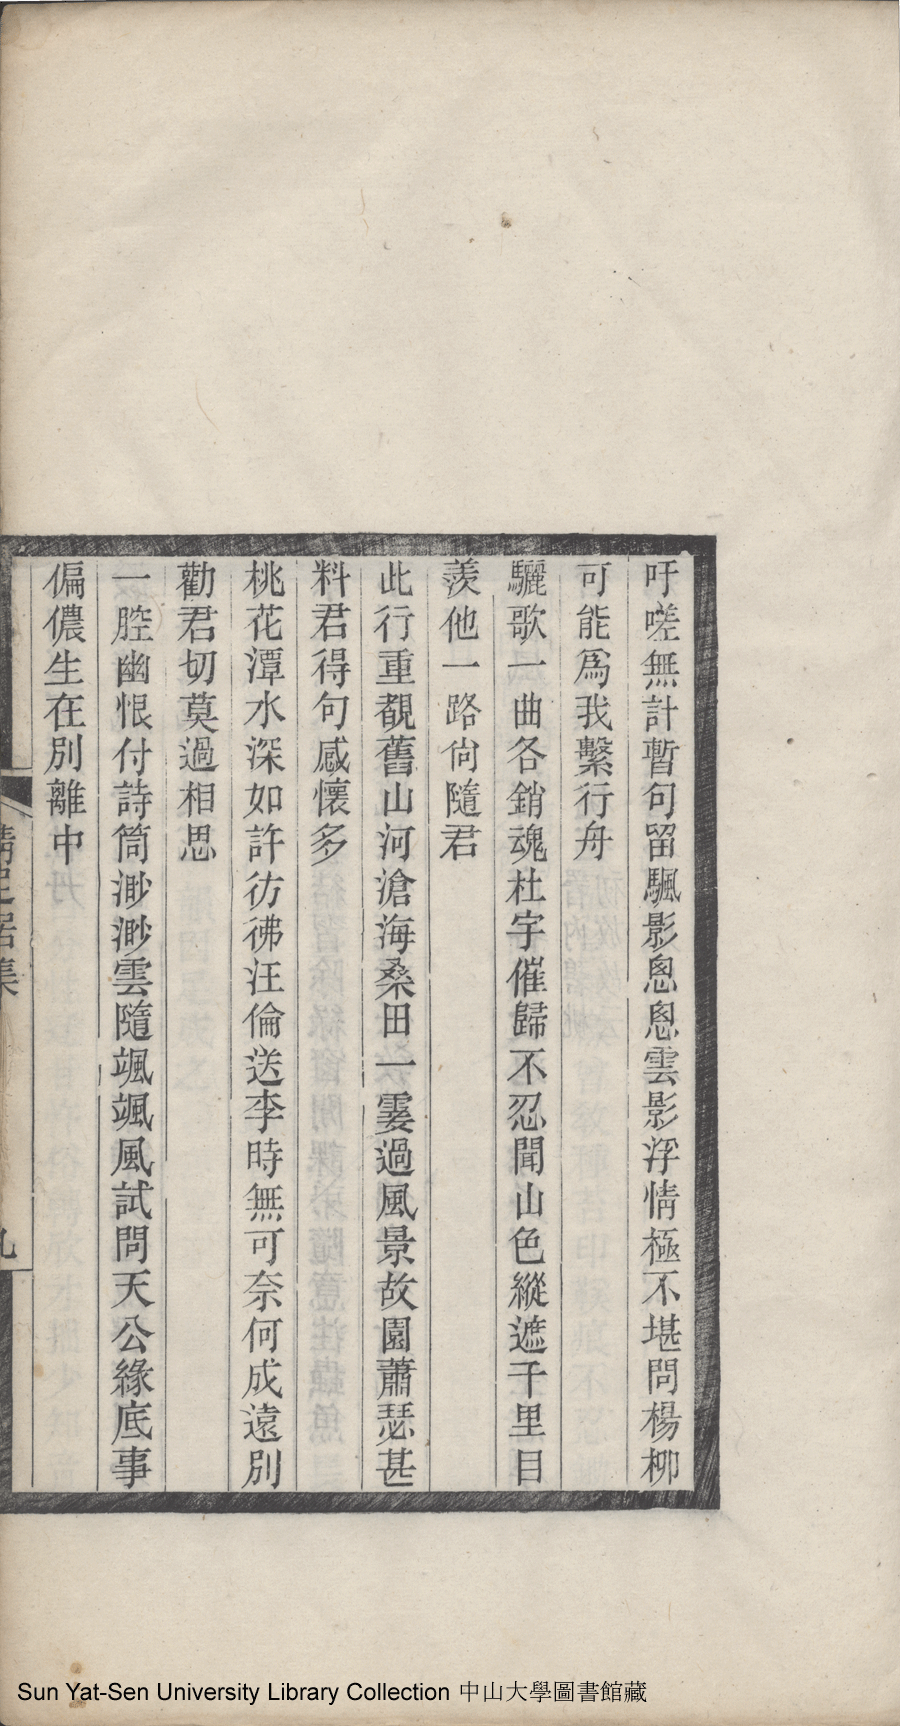 吁嗟無計暫句留颿影悤悤雲影浮情極不堪問楊柳
可能爲我繫行舟
驪歌一曲各銷魂杜宇催歸不忍聞山色縱遮千里目
羨他一路尙隨君
此行重覩舊山河滄海桑田一霎過風景故園蕭瑟甚
料君得句感懷多
桃花潭水深如許彷彿汪倫送李時無可奈何成遠別
勸君切莫過相思
一腔幽恨付詩筒渺渺雲隨颯颯風試問天公緣底事
偏儂生在別離中
集
九
Sun Yat-Sen University Library Collection 中山大學圖書館藏